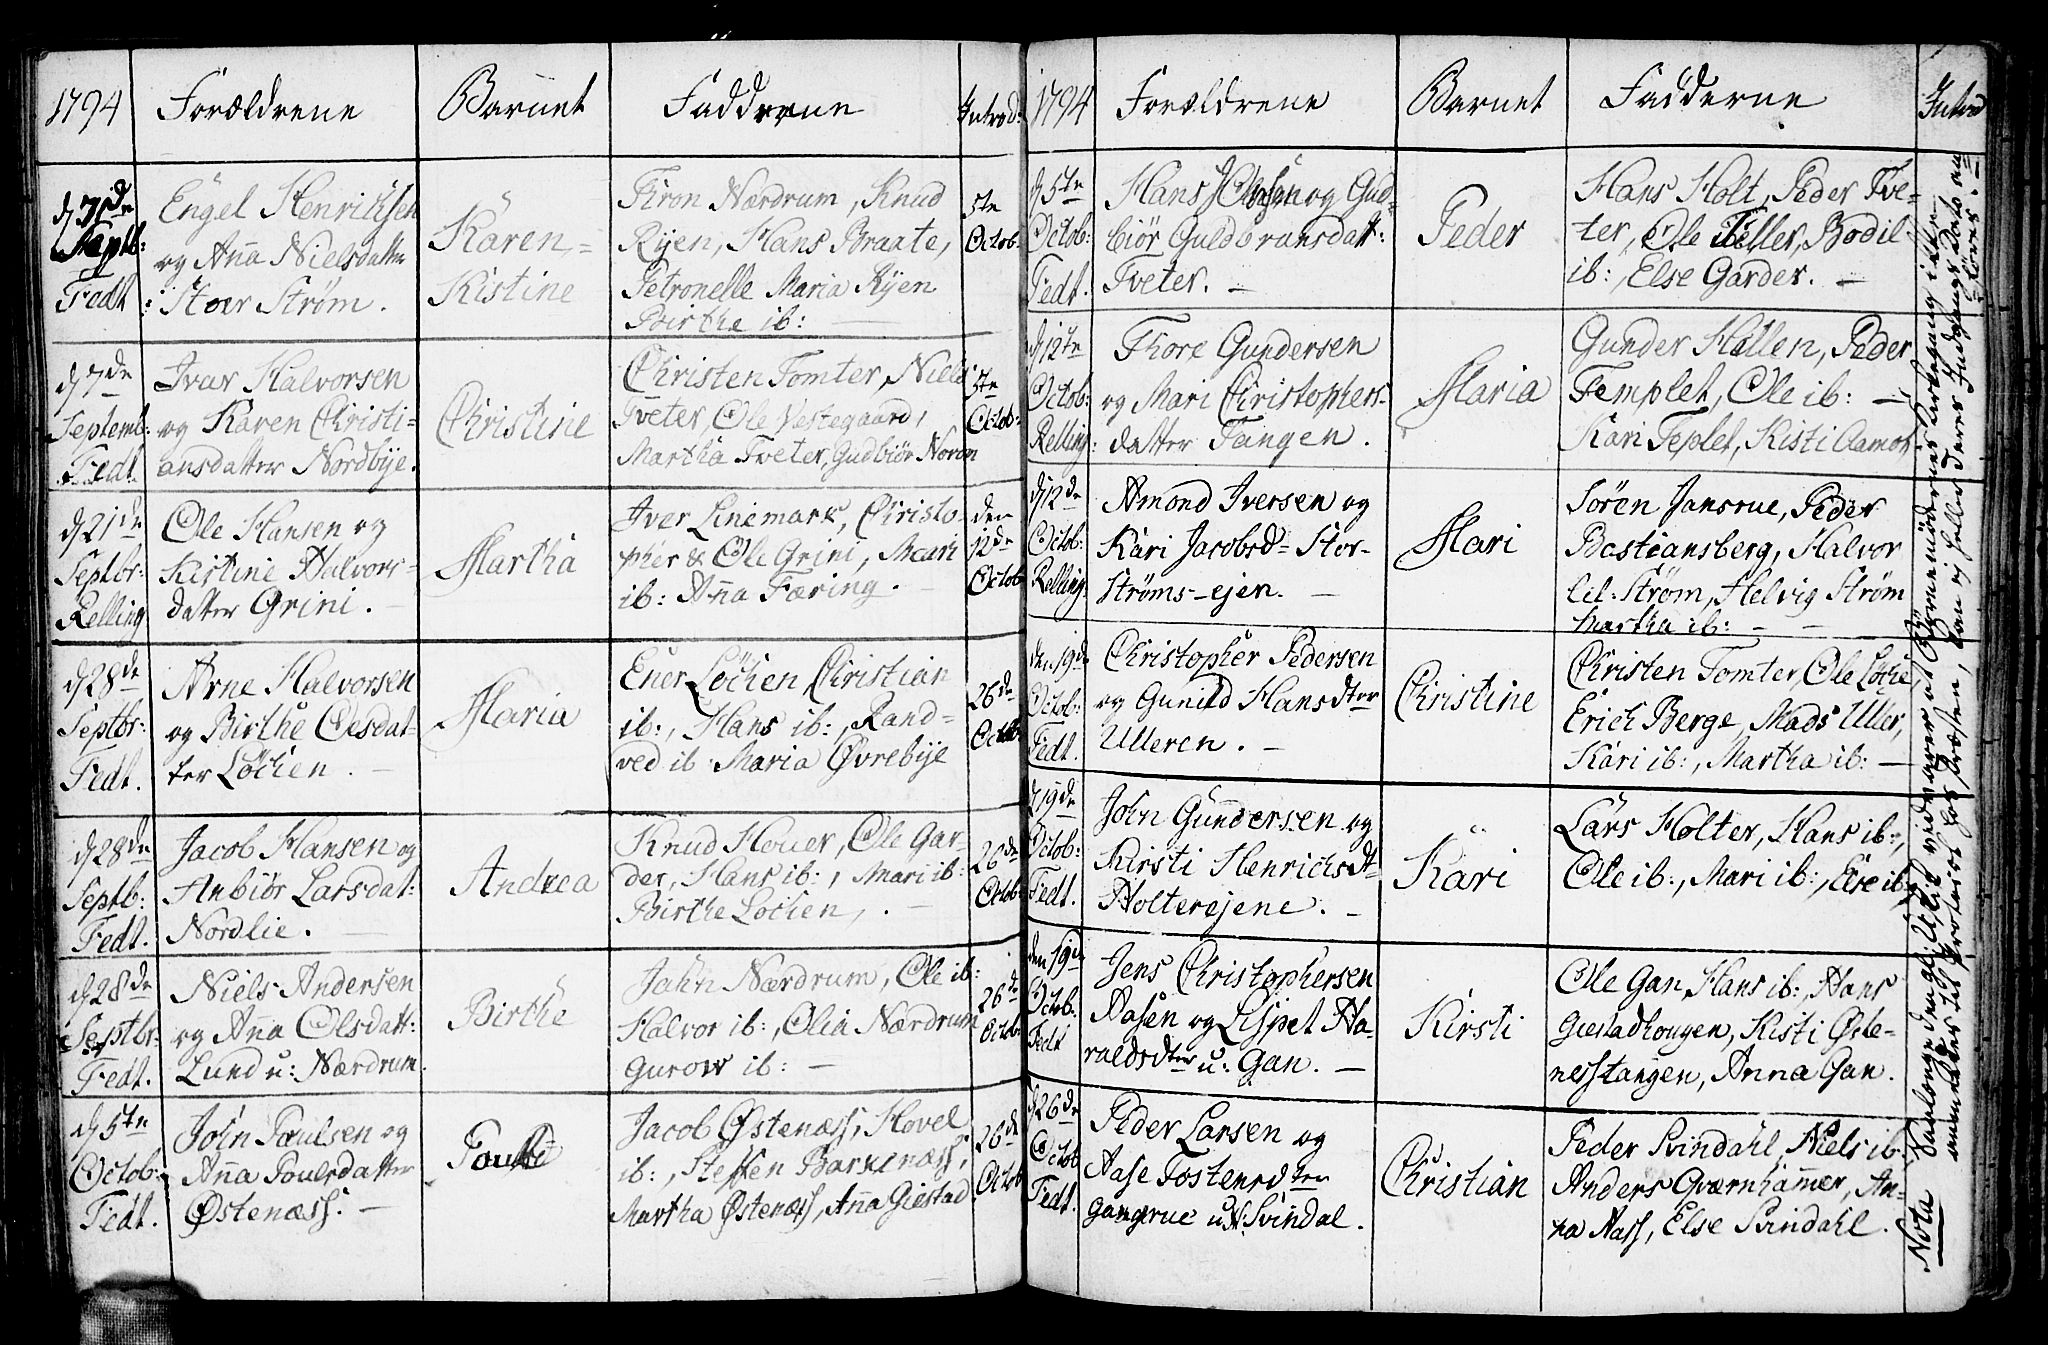 1794
Forældrene
Barnet
Fadderne
Introd:
d 7de
Septb:
Fedt
Engel Henrichsen
og Aña Nielsdatter
Stoer Strøm.
Karen-
Kistine
Tiron Nærdrum, Knud
Ryen, Hans Braate,
Petronelle Maria Ryen
Birthe ib:
5te
Octob:
d 7de
Septemb:
Fedt.
Ivar Halvorsen
og Karen Christi-
ansdatter Nordbye.
Christine
Christen Tomter, Niels
Tveter, Ole Vestegaard,
Martha Tveter, Gudbiør Noren
5te
Octob:
d 21de
Septbr:
Relling
Ole Hansen og
Kistine Halvors-
datter Grini.
Martha
Iver Linemark, Christo
pher & Ole Grini, Mari
ib: Aña Færing.
den
12de
Octob
d 28de
Septbr:
Fedt.
Arne Halvorsen
og Birthe Olesdat-
ter Löchen.
Maria
Ener Löchen, Christian
ib:, Hans ib:, Rand-
ved ib: Maria Øvrebye
26de
Octob:
d 28de
Septb:
Fedt.
Jacob Hansen og
Anbiör Larsdat:
Nordlie.
Andrea
Knud Houer, Ole Gar-
der, Hans ib:, Mari ib:
Birthe Lochen,
26de
Octob:
d 28de
Septbr:
Fedt.
Niels Andersen
og Aña Olsdatt:
Lund u: Nærdrum.
Birthe
Jahn Nærdrum, Ole ib:
Halvor ib:, Olia Nærdrum
Gurow ib:
26de
Octob:
d 5te
Octob:
Fedt.
John Paulsen og
Aña Poulsdatter
Østenæss.
Jacob Østenæss, Hovel
ib:, Steffen Barkenæss,
Martha Østenæss, Aña Giestad
26de
Octob
1794
Forældrene
Barnet
Fadderne
Introd
d 5te
Octob:
Fedt.
Hans og Gud-
biör Guldbransdatt:
Tveter.
Peder
Hans Holt, Peder Tve-
ter, Ole Bodil
ib:, Else Garder.
d 12te
Octob:
Relling:
Thore Gundersen
og Mari Christophers-
datter Tangen.
Maria
Gunder Hallen, Peder
Templet, Ole ib:
Kari Teplet, Kisti Aamot
d 12de
Octob:
Relling:
Amond Iversen og
Kari Jacobsd= Stor-
Strøms-ejen.
Mari
Sören Jansrue, Peder
Bastiansberg, Halvor
Lil: Strøm, Helvig Strøm
Martha ib:
den 19de
Octob:
Fedt.
Christopher Pedersen
og Gunild Hansdter
Ulleren.
Christine
Christen Tomter, Ole
Erich Berge, Mads Uller,
Kari ib:, Martha ib:
d 19de
Octob:
Fedt.
John Gundersen og
Kirsti Henrichsdt-
Holterejene.
Kari
Lars Holter, Hans ib:,
Ole ib:, Mari ib:, Else ib:
den 19de
Octob.
Fedt
Jens Christophersen
Aasen og Lispet Ha-
raldsdter u: Gan.
Kirsti
Ole Gan, Hans ib:, Hans
Giestadhougen, Kisti Øste-
nesstangen, Anna Gan.
d 26de
Octob
Fedt.
Peder Larsen og
Aase Tostensdter
Gangrue u: Svindal.
Christian
Peder Svindahl, Niels ib
Anders Qværnhamer, An-
na Nass, Else Svindahl.
Nota